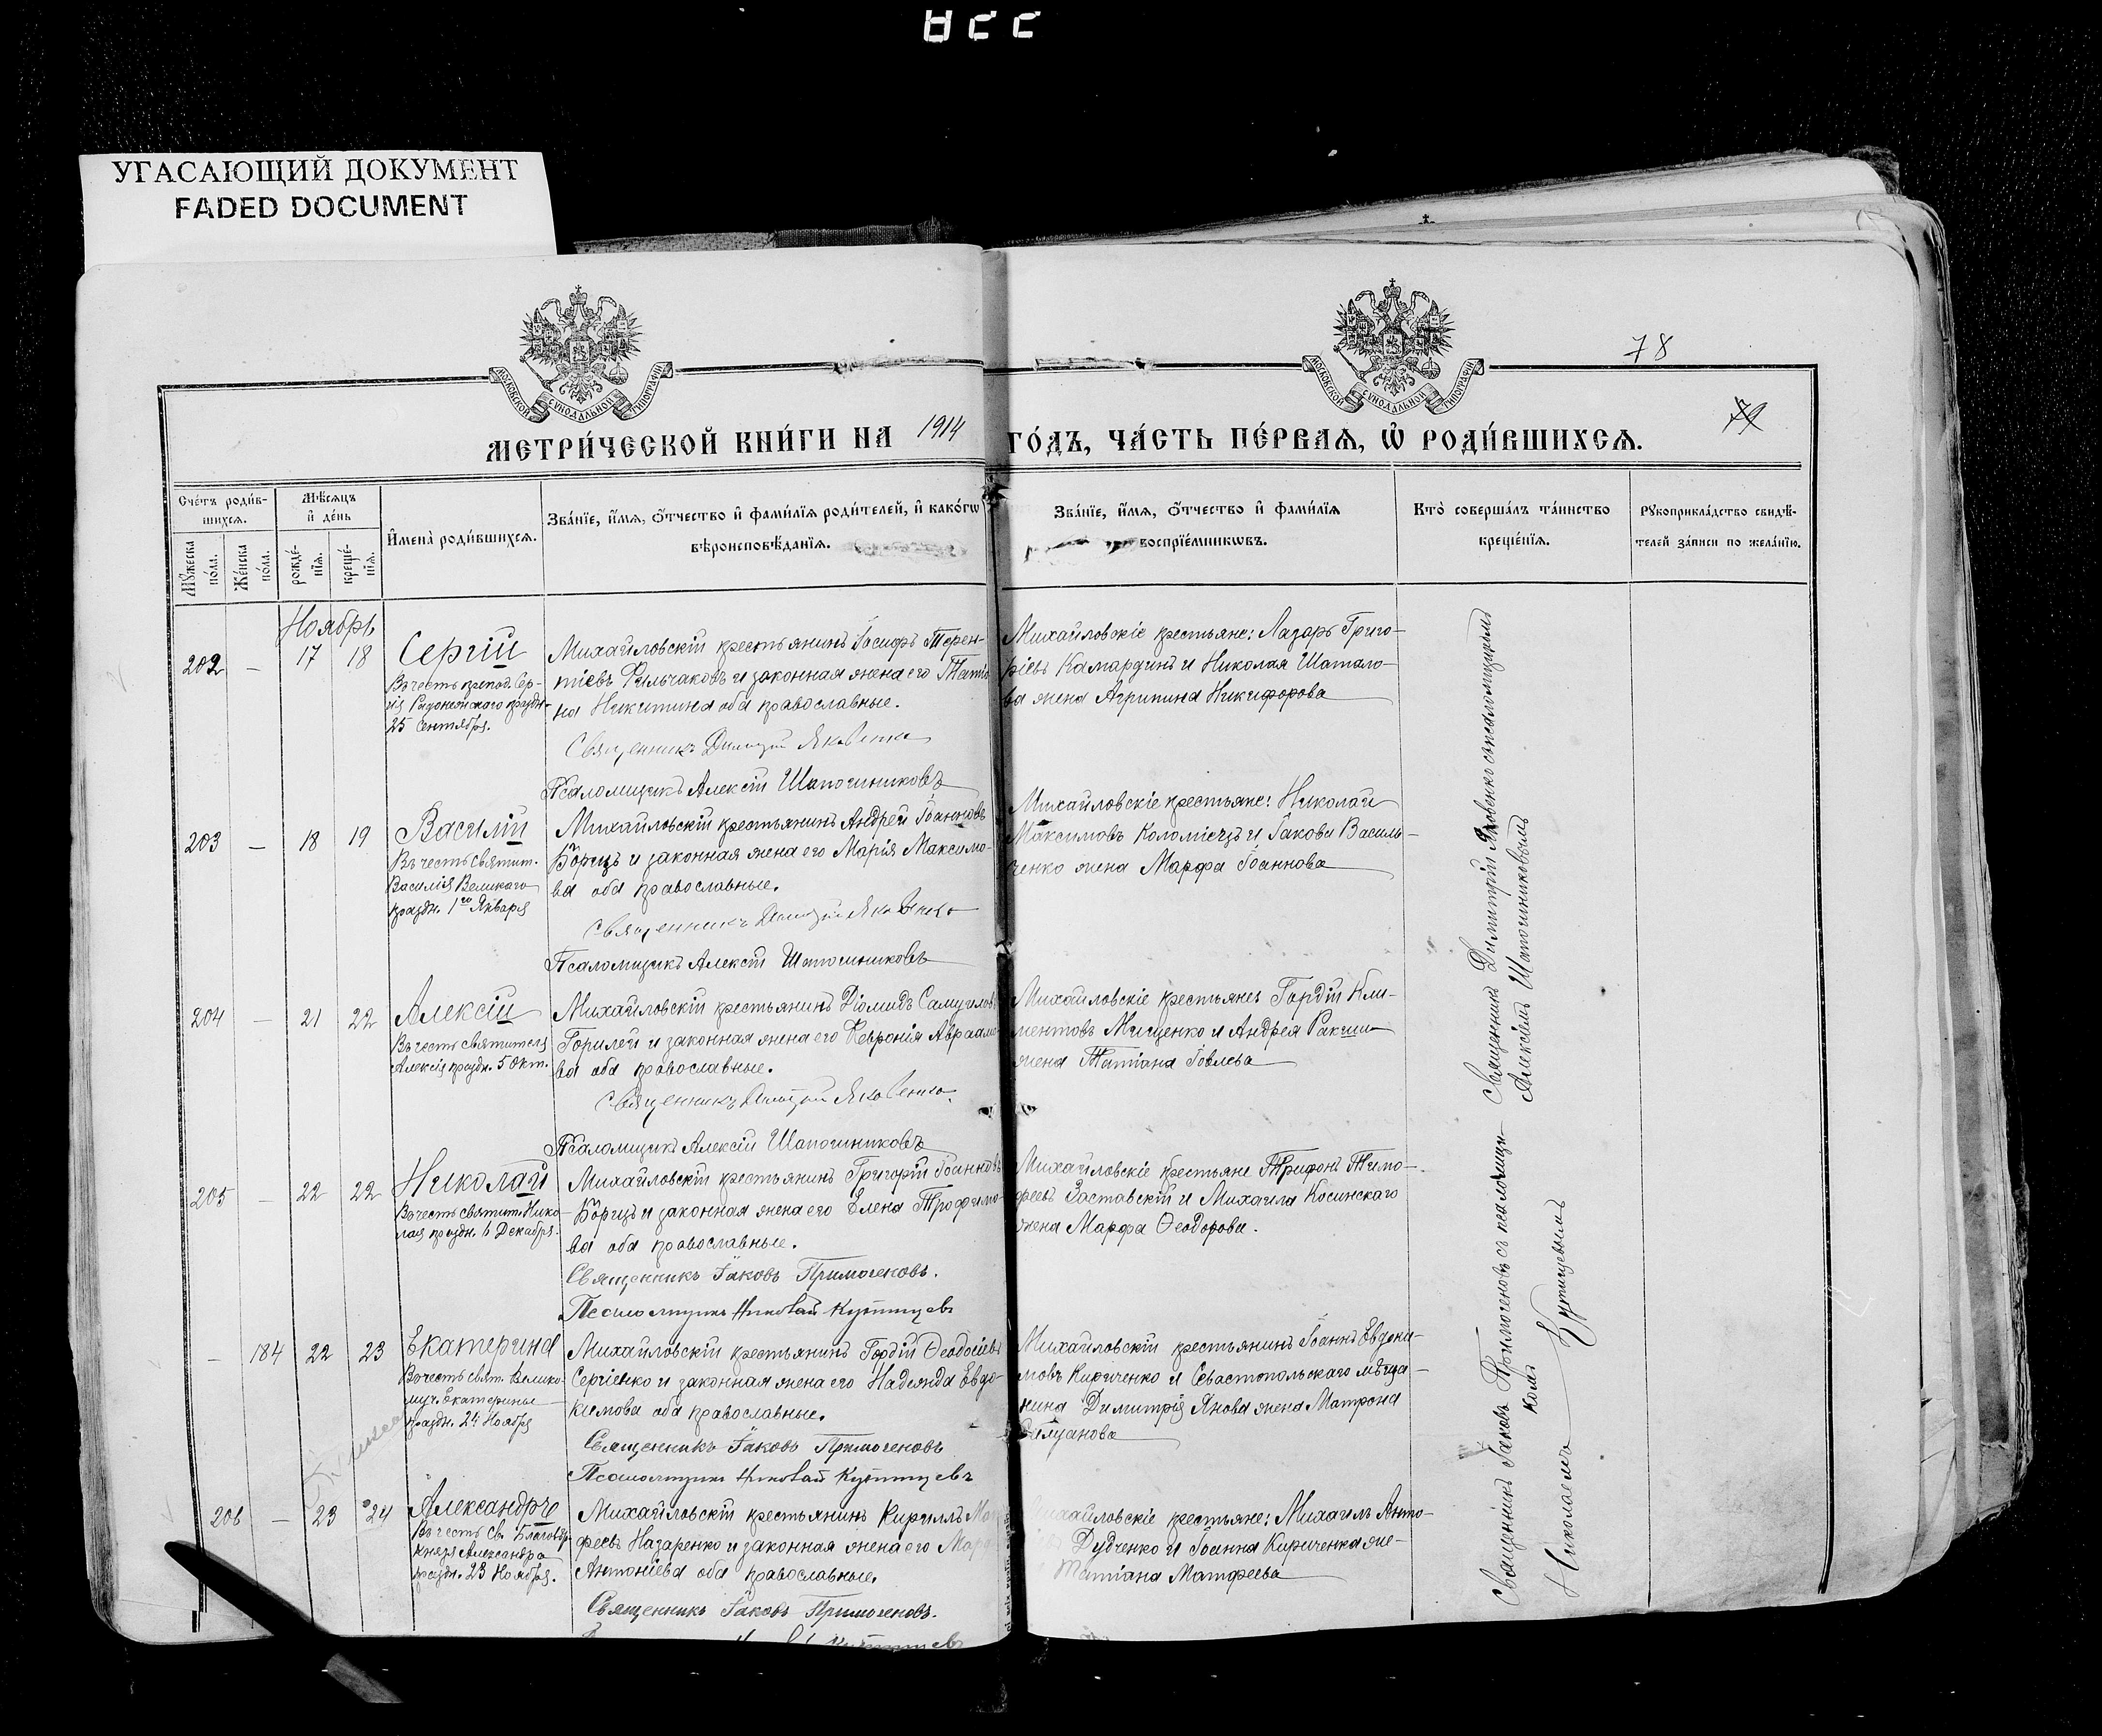 УГАСАЮЩИЙ ДОКУМЕНТ
FADED DOCUMENT
МОСКОВСКОЙ СѴНОДАЛЬНОЙ ТИПОГРАФІИ
МОСКОВСКОЙ СѴНОДАЛЬНОЙ ТИПОГРАФІИ
78
79
МЕТРИ́ЧЕСКОЙ КНИ́ГИ НА 1914 ГО́ДЪ, ЧА́СТЬ ПЕ́РВАѦ, Ѽ РОДИ́ВШИХСѦ.
Сче́тъ роди́в-
шихсѧ.
Мꙋ́жеска по́ла.
Же́нска по́ла.
Мѣ́сѧцъ
и҆ де́нь
рожде́-
нїѧ.
креще́-
нїѧ.
И҆мена̀ роди́вшихсѧ.
Зва́нїе, и҆́мѧ, ѻ҆́тчество и҆ фами́лїѧ роди́телей, и҆ како́гѡ
вѣроисповѣ́данїѧ.
Зва́нїе, и҆́мѧ, ѻ҆́тчество и҆ фами́лїѧ
воспрїе́мникѡвъ.
Кто̀ соверша́лъ та́инство
креще́нїѧ.
Рꙋкоприкла́дство свидѣ́-
телей за́писи по жела́нїю.
Ноябрь
202 — 17 18
Сергій
Въ честь препод. Сер-
гія Радонежскаго праздн.
25 Сентября.
Михайловскій крестьянинъ Іосифъ Терен-
тіевъ Фильчаковъ и законная жена его Татіа
на Никитина оба православные.
Священникъ Димитрій Яковенко
Псаломщикъ Алексій Шапочниковъ
Михайловскіе крестьяне: Лазарь Григо-
ріевъ Камардинъ и Николая Шатало-
ва жена Агрипина Никифорова
203 — 18 19
Василій
Въ честь святит.
Василія Великаго
праздн. 1го Января
Михайловскій крестьянинъ Андрей Іоанновъ
Борецъ и законная жена его Марія Максимо-
ва оба православные.
Священникъ Димитрій Яковенко
Псаломщикъ Алексій Шапочниковъ
Михайловскіе крестьяне: Николай
Максимовъ Коломіецъ и Іакова Василь-
ченко жена Марфа Іоаннова
204 — 21 22
Алексій
Въ честь святителя
Алексія праздн. 5 Окт.
Михайловскій крестьянинъ Діомидъ Самуиловъ
Горилей и законная жена его Февронія Авраамо
ва оба православные.
Священникъ Димитрій Яковенко.
Псаломщикъ Алексій Шапочниковъ
Михайловскіе крестьяне Гордій Кли-
ментовъ Мищенко и Андрея Ракши
жена Татіана Іовлева
205 — 22 22
Николай
Въ честь святит. Нико-
лая праздн. 6 Декабря.
Михайловскій крестьянинъ Григорій Іоанновъ
Борецъ и законная жена его Елена Трофимо-
ва оба православные.
Священникъ Іаковъ Примогеновъ.
Псаломщикъ Николай Купитцевъ
Михайловскіе крестьяне Трифонъ Тимо-
феевъ Заставскій и Михаила Косинскаго
жена Марфа Ѳеодорова.
— 184 22 23
Екатерина
Въ честь свят. Велико-
муч. Екатерины
праздн. 24 Ноября
Михайловскій крестьянинъ Гордій Ѳеодосіевъ
Сергіенко и законная жена его Надежда Евдо-
кимова оба православные.
Священникъ Іаковъ Примогеновъ
Псаломщикъ Николай
Михайловскій крестьянинъ Іоаннъ Евдоки-
мовъ Кириченко и Севастопольскаго мѣща-
нина Димитрія Янова жена Матрона
206 — 23 24
Александръ
Въ честь Св. Благовѣр.
князя Александра
праздн. 23 Ноября.
Михайловскій крестьянинъ Кириллъ
феевъ Назаренко и законная жена его
Антоніева оба православные.
Священникъ Іаковъ Примогеновъ.
Михайловскіе крестьяне: Михаилъ Анто-
Дудченко и Іоанна Кириченка же-
Татіана Матфеева
Священникъ Димитрій Яковенко съ псаломщикомъ
Алексіемъ Шапочниковымъ
Священникъ Іаковъ Примогеновъ съ псаломщи-
комъ
Николаемъ